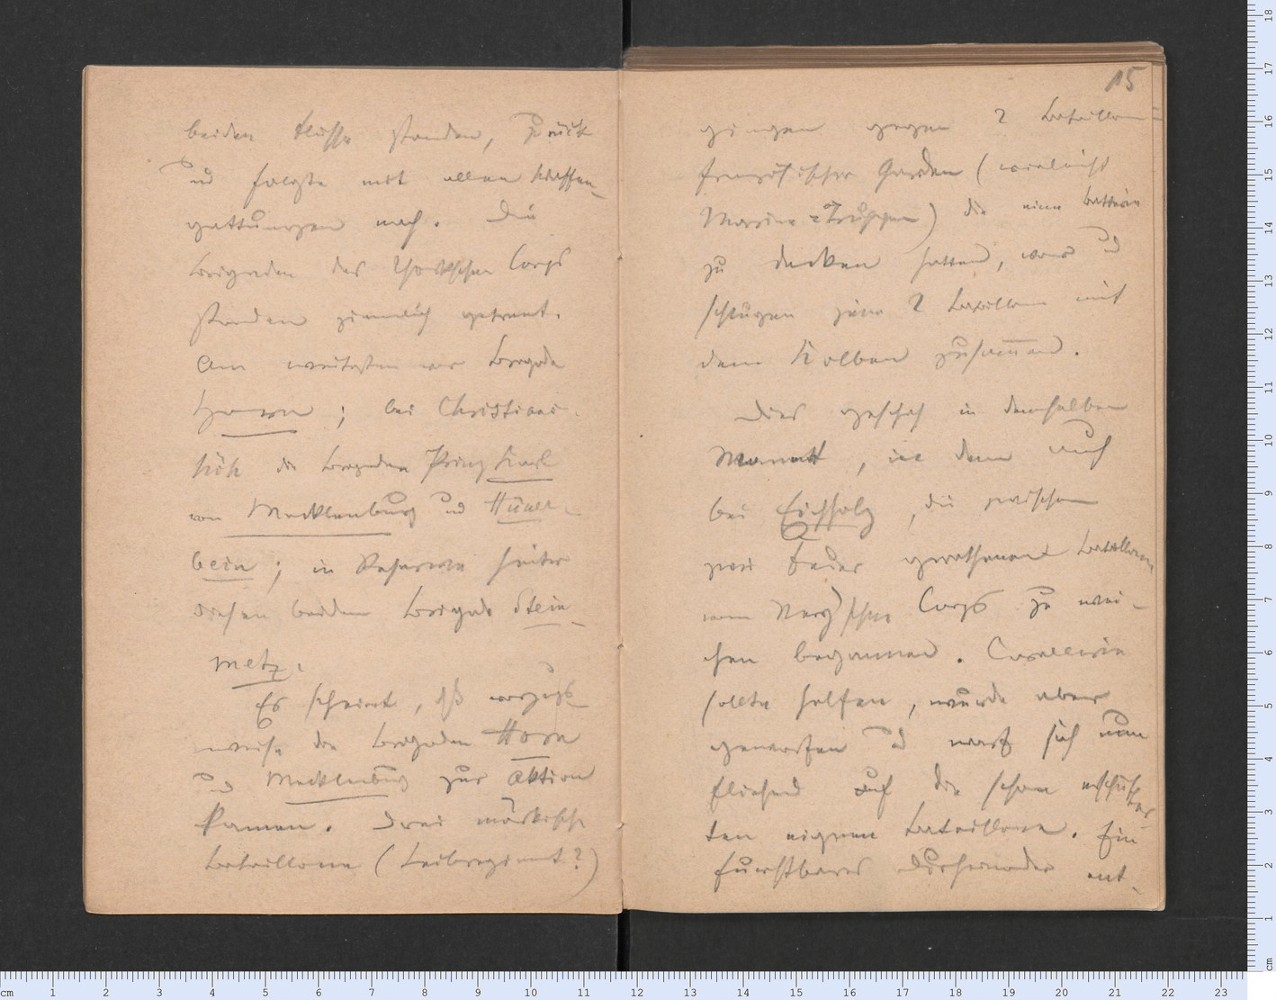 beiden Flüsse standen, zurück
und folgte mit allen Waffen-
gattungen nach. Die
Brigaden des Yorkschen Corps
standen ziemlich getrennt.
Am weitesten vor Brigade
Horn; bei Christians-
höh die Brigaden Prinz Karl
von Mecklenburg und Hüner-
bein; in Reserve hinter
diesen beiden Brigade Stein-
metz.
Es scheint, daß vorzugs
weise die Brigaden Horn
und Mecklenburg zur Aktion
kamen. Drei märkische
Bataillone (Leibregiment?)
15
gingen gegen 2 Bataillone
französischer Garden (vielleicht
Marine-Truppen) die eine Batterie
zu decken hatten, vor und
schlugen jene 2 Bataillone mit
dem Kolben zusammen.
Dies geschah in demselben
Moment, in dem auch
bei Eichholz, die zwischen
zwei Feuer gerathenen Bataillone
vom Ney'schen Corps zu wei-
chen begannen. Cavallerie
sollte helfen, wurde aber
geworfen und warf sich nun
fliehend auf die schon erschütter-
ten eignen Bataillone. Ein
furchtbares Durcheinander ent-